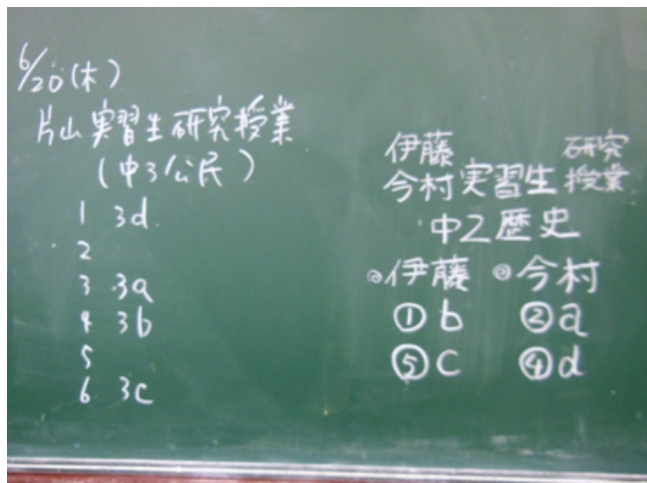 6/20(木)
片山実習生研究授業
(中3公民)
1 3d
2
3 3a
4 3b
5
6 3c
伊藤
今村実習生研究授業
中2歴史
◎伊藤 ◎今村
① b ② a
⑤ c ④ d